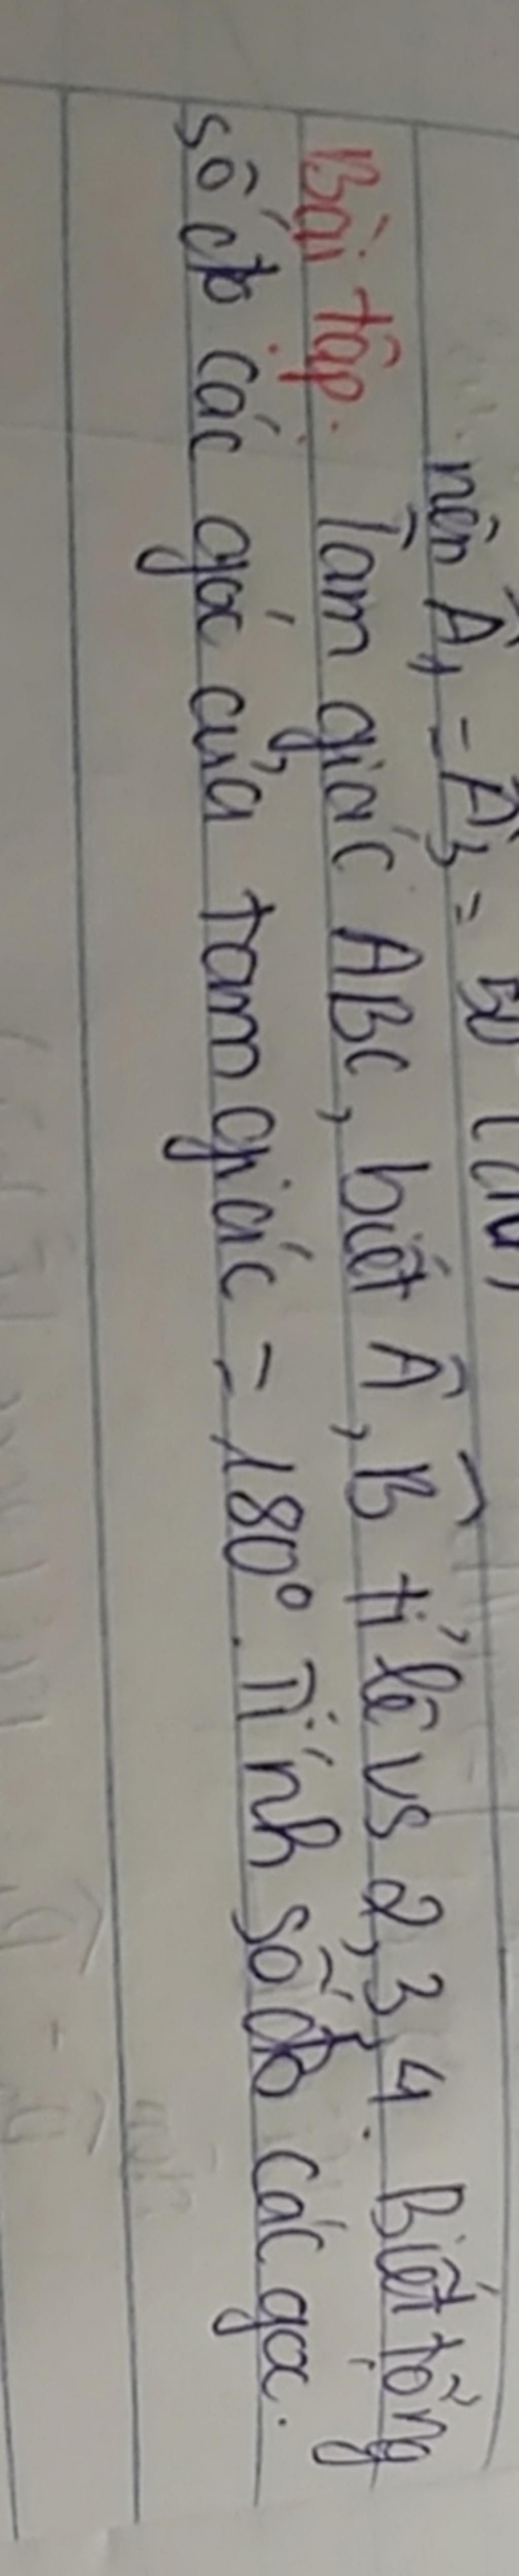 nên Â₁ = Â₃ = 50
Bài tập. Tam giác ABC, biết Â, B̂ tỉ lệ vs 2, 3, 4. Biết tổng
số đo các góc của tam giác = 180°. Tính số đo các góc.